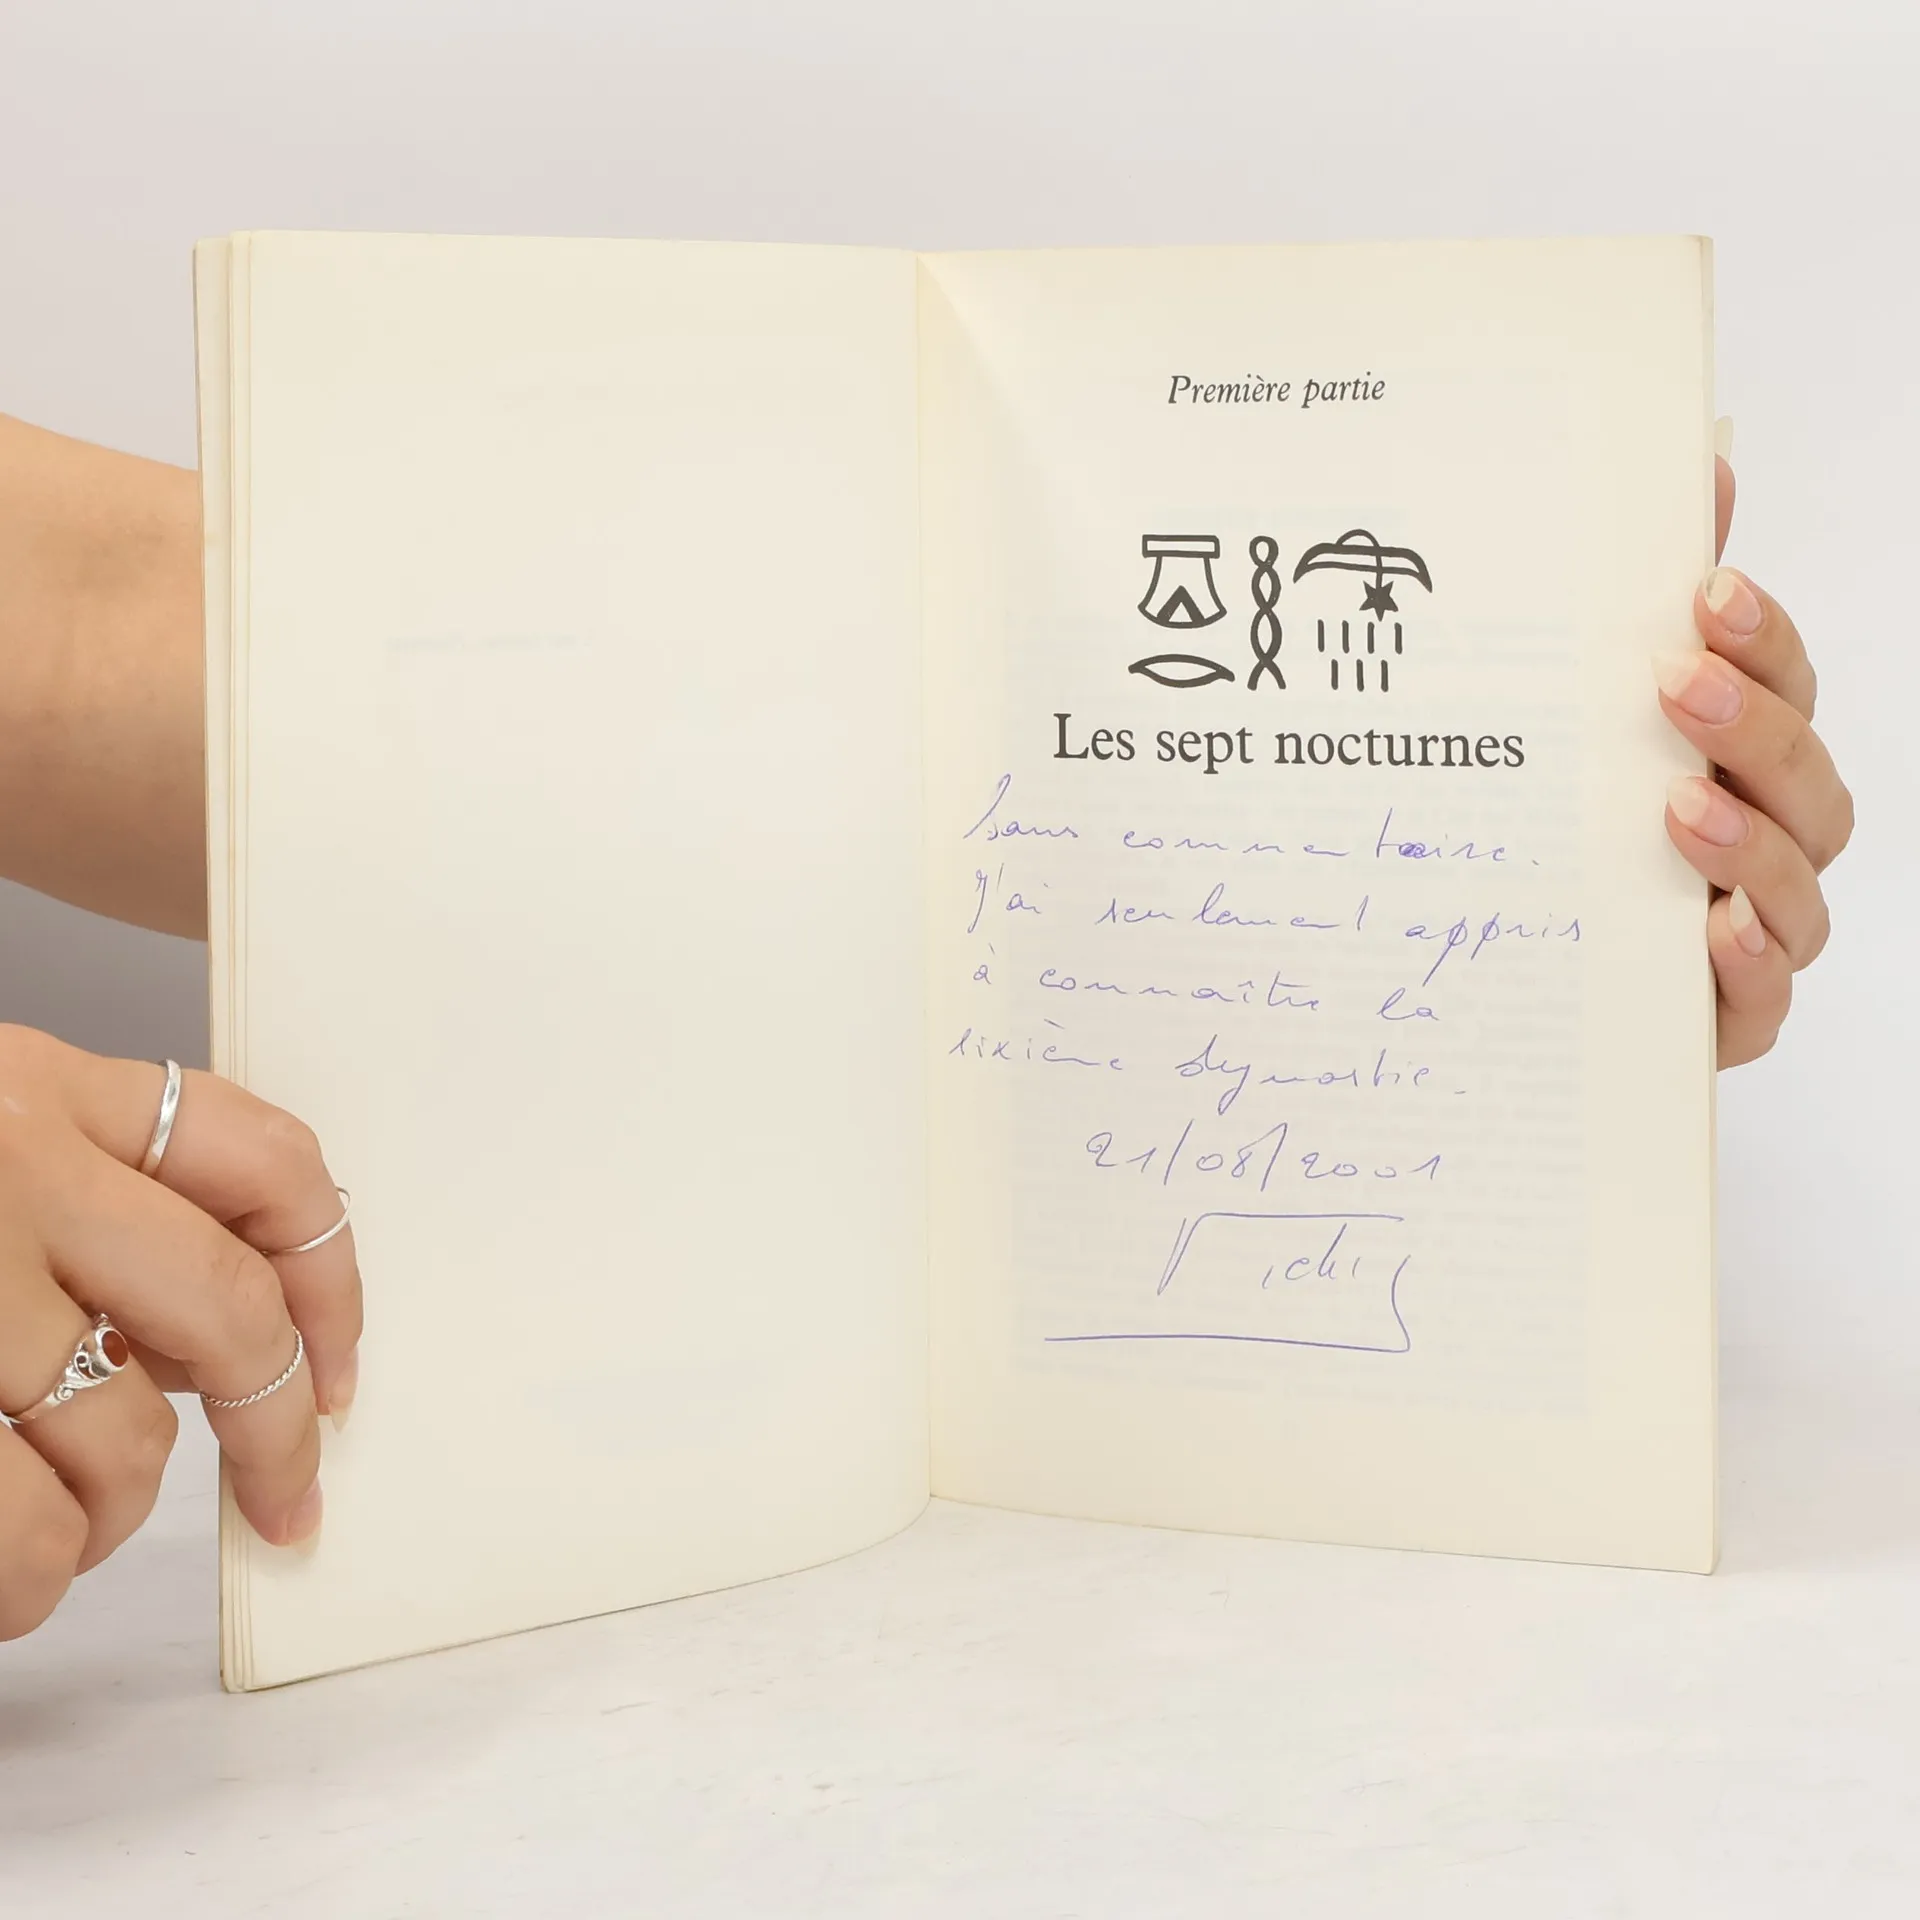 Première partie
Les sept nocturnes
Sans commentaire.
J'ai seulement appris
à connaître la
sixième dynastie.
21/08/2001